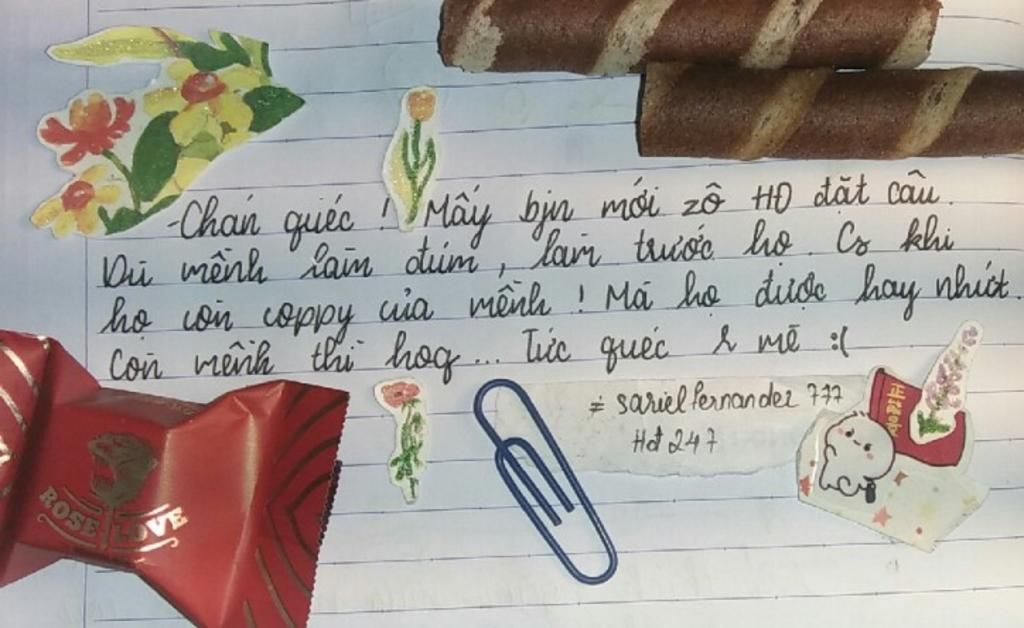 -Chán quéc ! Mấy bjn mới zô HĐ đặt câu.
Dù mềnh làm đúm, làm trước họ. Cs khi
họ còn coppy của mềnh ! Mà họ được hay nhứt.
Còn mềnh thì hog... Tức quéc r mè :(
# sarielfernandez 777
Hđ 247
ROSE LOVE